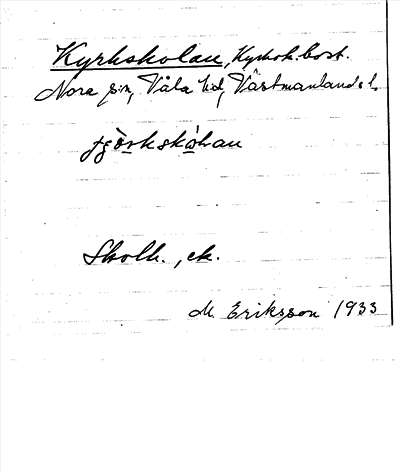 Kyrkskolan, Kyrkok. bost.
Nora sn, Våla hd, Västmanlands l.
Skolh., ek.
M. Eriksson 1933